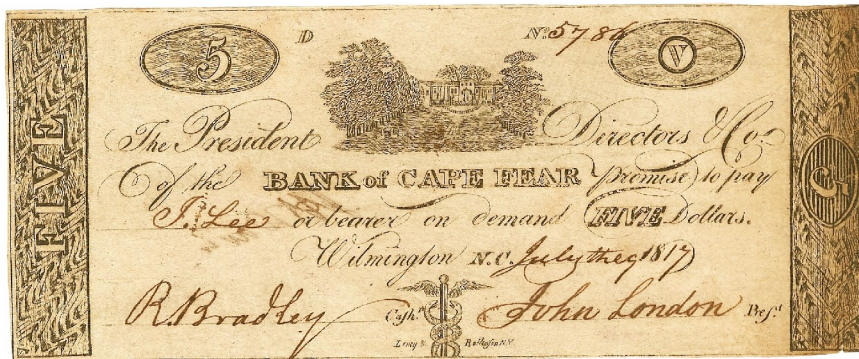 5 D No. 5786 V
The President Directors & Co.
of the BANK of CAPE FEAR promise to pay
J. Lee or bearer on demand FIVE Dollars.
Wilmington N.C. July the 9 1817
R. Bradley Cashr. John London Prest.
Leney &
FIVE
5